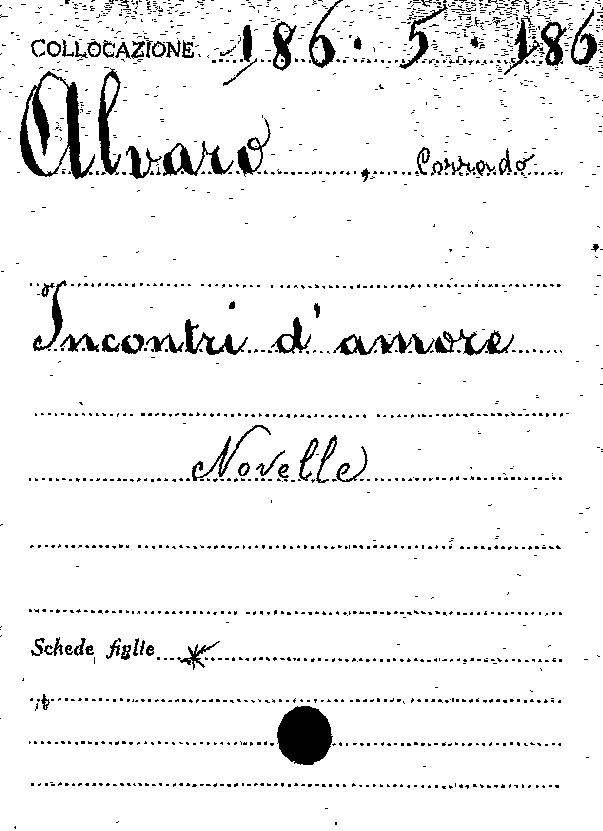 COLLOCAZIONE 186. 5. 186
Alvaro, Corrado
Incontri d'amore
Novelle
Schede figlie